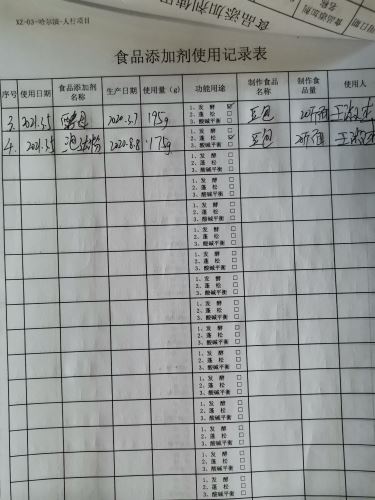 XZ-03-哈尔滨-人行项目
食品添加剂使用
食品添加剂使用记录表
序号 使用日期 食品添加剂名称 生产日期 使用量（g） 功能用途 制作食品名称 制作食品量 使用人
1、发 酵 ☑
3. 2021.3.5 酵母 2020.3.7 195g 2、蓬 松 □ 豆包
3、酸碱平衡 □
1、发 酵 □
4. 2021.3.5 泡打粉 2020.8.8 175g 2、蓬 松 ☑ 豆包
3、酸碱平衡 □
1、发 酵 □
2、蓬 松 □
3、酸碱平衡 □
1、发 酵 □
2、蓬 松 □
3、酸碱平衡 □
1、发 酵 □
2、蓬 松 □
3、酸碱平衡 □
1、发 酵 □
2、蓬 松 □
3、酸碱平衡 □
1、发 酵 □
2、蓬 松 □
3、酸碱平衡 □
1、发 酵 □
2、蓬 松 □
3、酸碱平衡 □
1、发 酵 □
2、蓬 松 □
3、酸碱平衡 □
1、发 酵 □
2、蓬 松 □
3、酸碱平衡 □
1、发 酵 □
2、蓬 松 □
3、酸碱平衡 □
1、发 酵 □
2、蓬 松 □
3、酸碱平衡 □
1、发 酵 □
2、蓬 松 □
3、酸碱平衡 □
1、发 酵 □
2、蓬 松 □
3、酸碱平衡 □
1、发 酵 □
2、蓬 松 □
3、酸碱平衡 □
1、发 酵 □
2、蓬 松 □
3、酸碱平衡 □